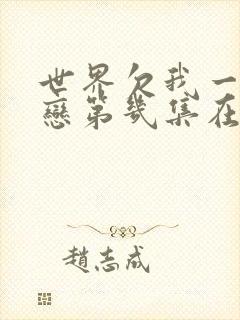 世界欠我一
戀第幾集在
趙志成